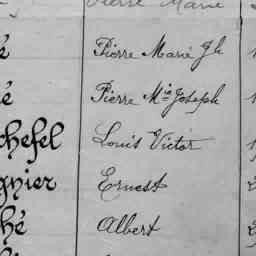 Pierre Marie
é Pierre Marie Jh
é Pierre Mie Joseph
chefel Louis Victor
gnier Ernest
hé Albert